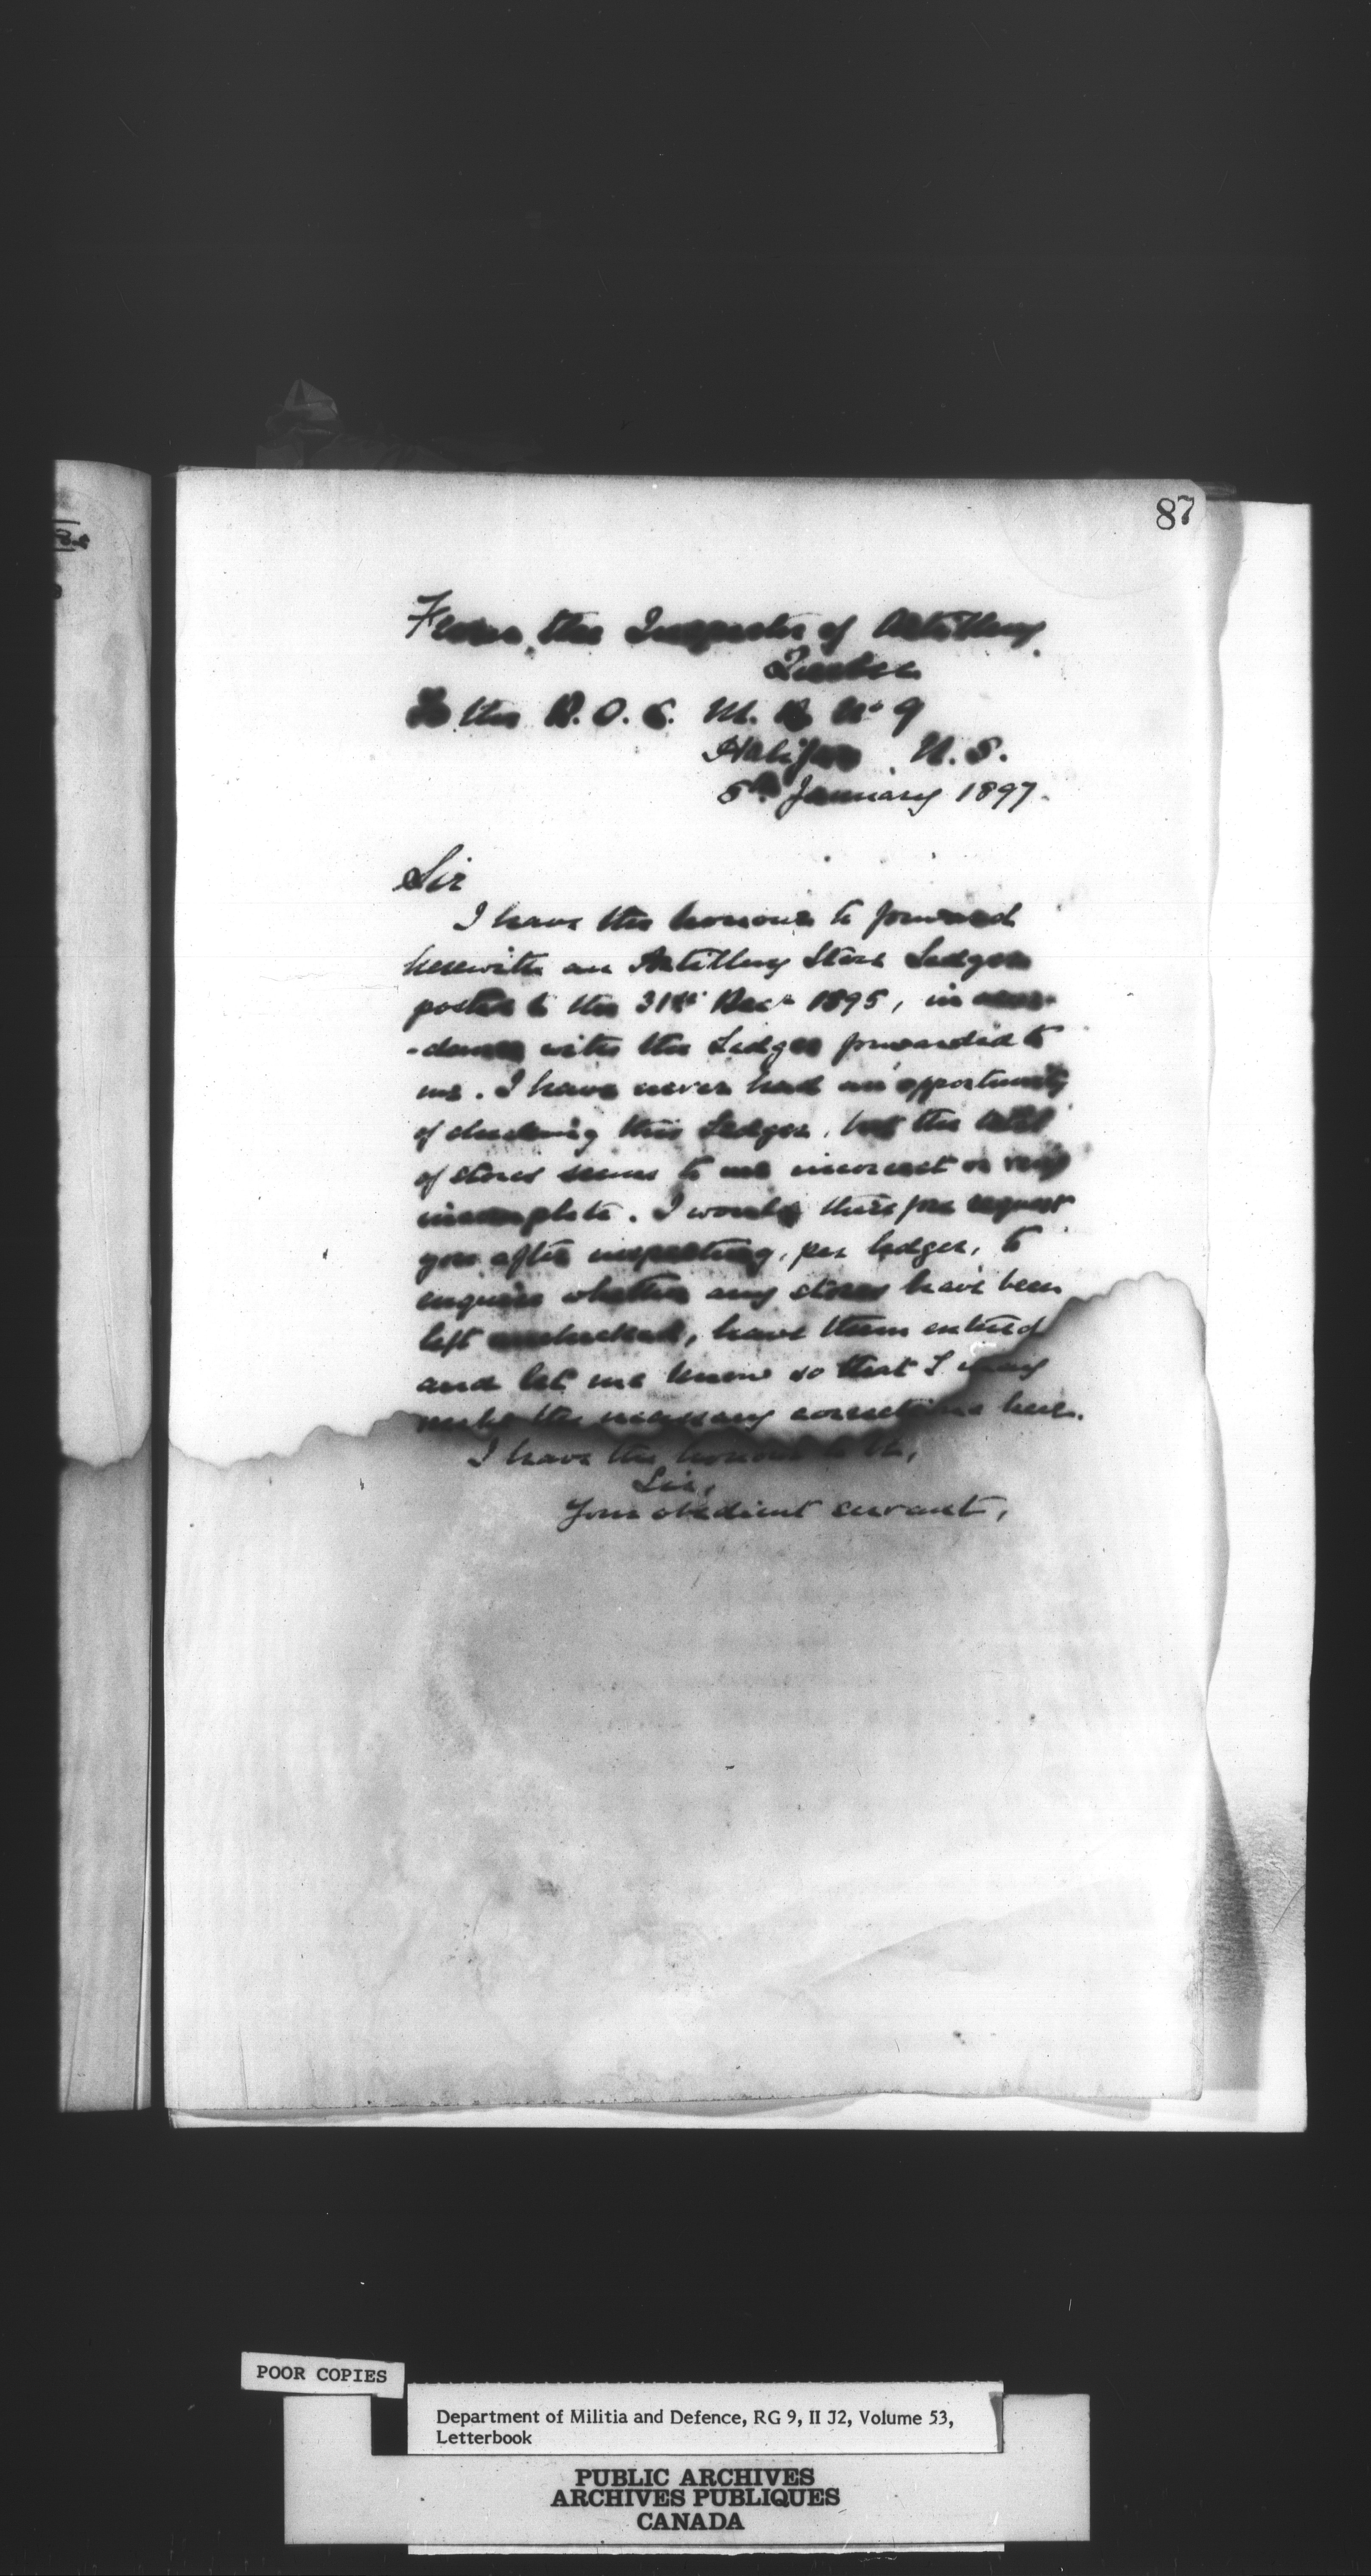 87
From the Inspector of Artillery
Quebec
To the D.O.C. M.D. No 9
Halifax N.S.
5th January 1897.
Sir
I have the honour to forward
herewith an Artillery Store Ledger
posted to the 31st Decr 1895, in accor-
-dance with the Ledger forwarded to
me. I have never had an opportunity
of checking this Ledger, but the
of stores seems to me incorrect or very
incomplete. I would therefore request
you after inspecting, per ledger, to
enquire whether any stores have been
left, have them entered
and let me know so that I may
make the necessary corrections here.
I have the honour to be,
Sir,
Your obedient servant,
POOR COPIES
Department of Militia and Defence, RG 9, II J2, Volume 53,
Letterbook
PUBLIC ARCHIVES
ARCHIVES PUBLIQUES
CANADA